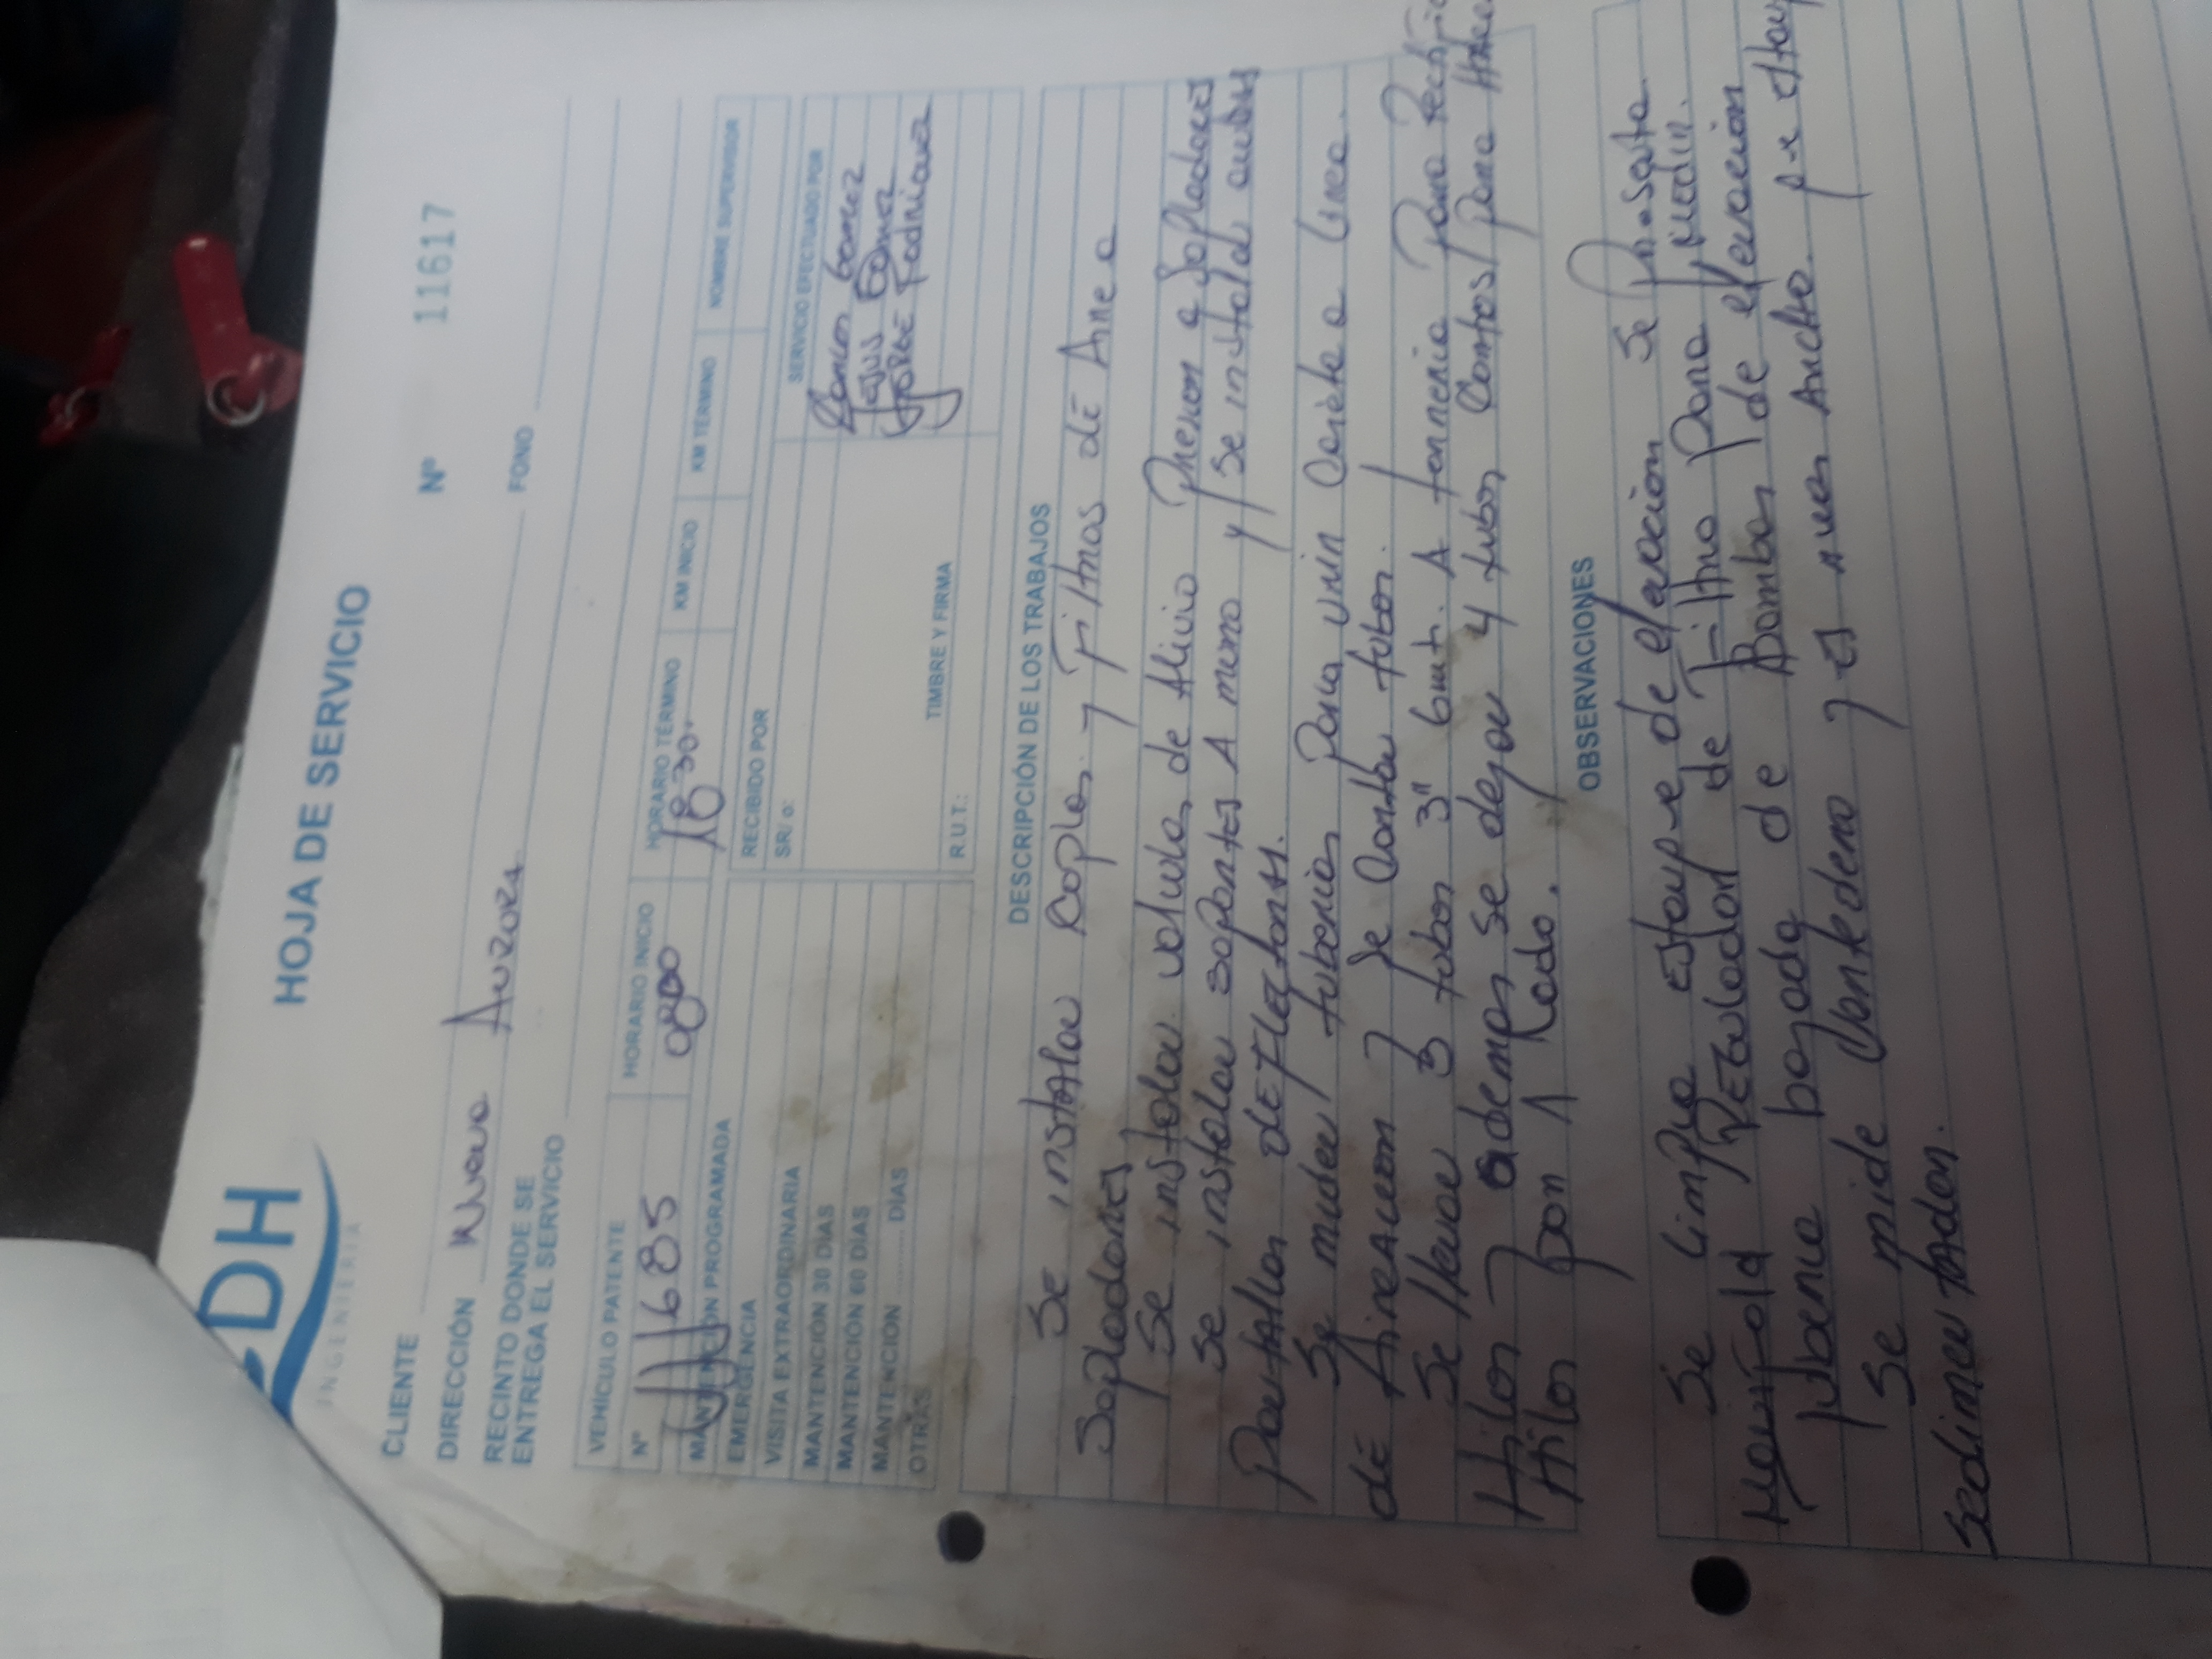 DH
INGENIERIA
HOJA DE SERVICIO
Nº 11617
CLIENTE
DIRECCIÓN Nueva Aurora
FONO
RECINTO DONDE SE
ENTREGA EL SERVICIO
VEHÍCULO PATENTE
HORARIO INICIO
HORARIO TÉRMINO
KM INICIO
KM TÉRMINO
NOMBRE SUPERVISOR
Nº JJJ685
0800
18 30.
MANTENCIÓN PROGRAMADA
EMERGENCIA
VISITA EXTRAORDINARIA
MANTENCIÓN 30 DÍAS
MANTENCIÓN 60 DÍAS
MANTENCIÓN .......... DÍAS
OTRAS
RECIBIDO POR
SR/ o:
TIMBRE Y FIRMA
R.U.T.:
SERVICIO EFECTUADO POR
Carlos Gomez
Jesus Gomez
Jorge Rodriguez
DESCRIPCIÓN DE LOS TRABAJOS
Se instalan Coplas y Filtros de Aire a
Sopladores,
Se instalan valvulas de Alivio Presion a Sopladores
Se instalan soportes A muro y Se instalan ambas
Pantallas deflectoras.
Se miden tuberias para unir Carrete a linea
de Aireacion y Se Cortan tubos.
Se llevan 3 tubos 3" 6mt. A torneria para
Hilos y ademas se dejan 4 tubos Cortos para
Hilos por 1 lado.
OBSERVACIONES
Se limpia Estanque de elevacion Se Presenta
Manifold Regulador de Filtro para medir.
tuberia bajada de Bombas de elevacion
Se mide Vertedero y es mas Ancho que
sedimentador.